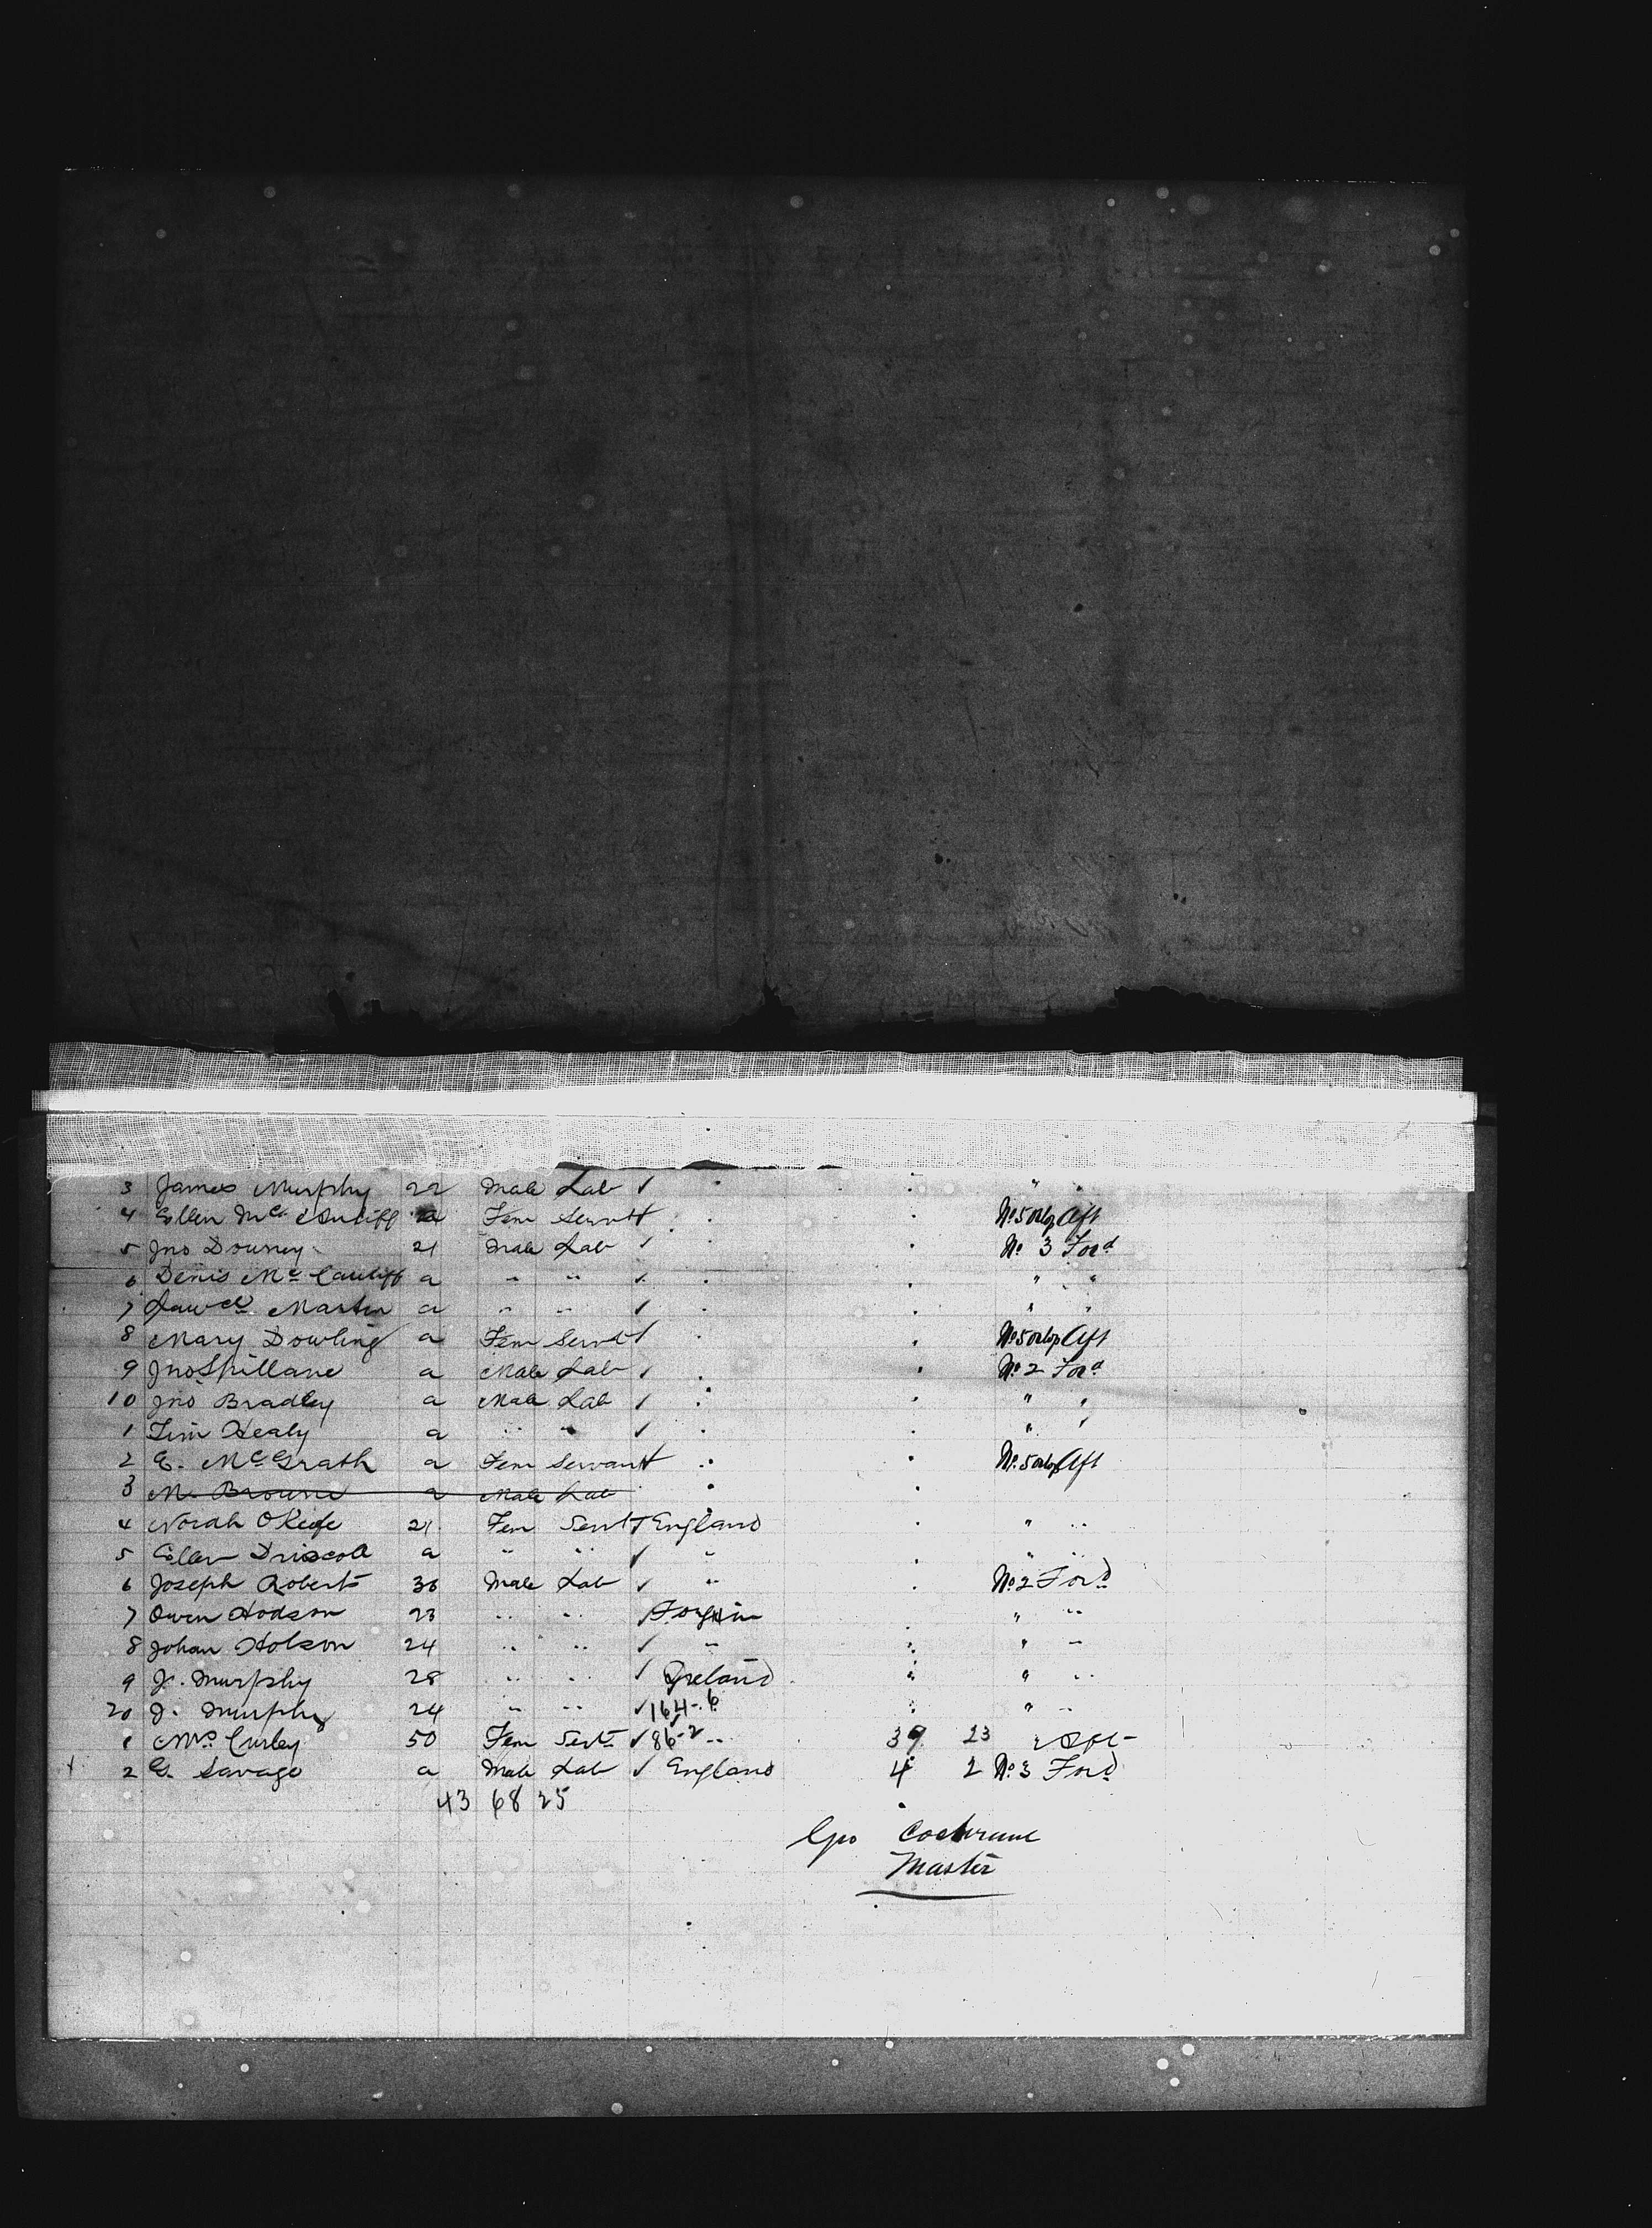 3 James Murphy 22 Male Lab ✓ " "
4 Ellen Mc Auliff a Fem Servt ✓ No 5 Orlop Aft
5 Jno Downey 21 Male Lab ✓ No 3 Ford
6 Denis Mc Cauliff a " " ✓ " "
7 Lawce Martin a " " ✓ " "
8 Mary Dowling a Fem Servt ✓ No 5 orlop Aft
9 Jno Spillane a Male Lab ✓ No 2 Ford
10 Jno Bradley a Male Lab ✓ " "
1 Tim Healy a " " ✓ " "
2 E. McGrath a Fem Servant ✓ No 5 orlop Aft
3 M. Browne a Male Lab
4 Norah OKeefe 21 Fem Servt England " "
5 Ellen Driscoll a " " ✓ " " "
6 Joseph Roberts 36 Male Lab ✓ " No 2 Ford
7 Owen Hodson 23 " " ✓ " "
8 Johan Holson 24 " " ✓ " " "
9 J. Murphy 28 " " ✓ Ireland " "
20 J. Murphy 24 " " ✓ 164-6 " "
1 Mrs Curley 50 Fem Servt ✓ 86-2 " 39 23
2 G. Savage a Male Lab ✓ England 4 2 No 3 Ford
43 68 25
Geo Cochrane
Master